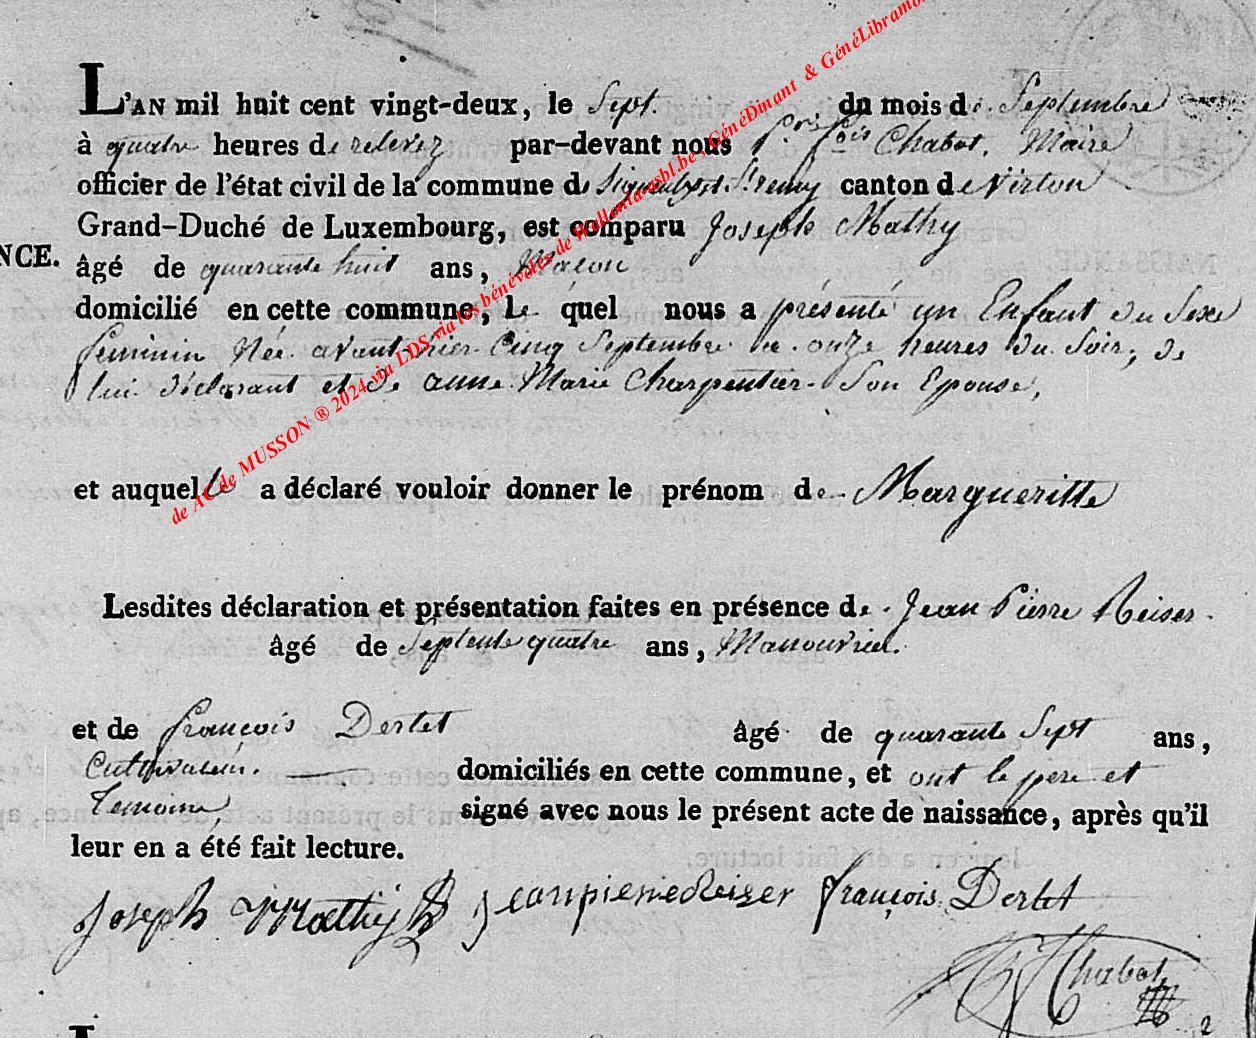 L'AN mil huit cent vingt-deux, le Sept. du mois de Septembre
à quatre heures de relevez par-devant nous Pre. fois Chabot, Maire
officier de l'état civil de la commune de St remy canton de Virton
Grand-Duché de Luxembourg, est comparu Joseph Mathy
NCE.
âgé de quarante huit ans, Macon
domicilié en cette commune, le quel nous a présenté un Enfant du Sexe
feminin Née avant hier Cinq Septembre a onze heures du Soir, de
lui déclarant et de anne Marie Charpentier Son Epouse,
et auquel le a déclaré vouloir donner le prénom de Margueritte
Lesdites déclaration et présentation faites en présence de Jean Pierre Reiser
âgé de Septente quatre ans, Manouvrier.
et de françois Dertet âgé de quarante Sept ans,
Cultivateur. domiciliés en cette commune, et ont le pere et
Temoins, signé avec nous le présent acte de naissance, après qu'il
leur en a été fait lecture.
Joseph Mathij Jeanpierre Reiser françois Dertet
Chabot
2
de AC de MUSSON ® 2024 via LDS via les bénévoles de Wallonia-asbl.be, GénéDinant & GénéLibramo